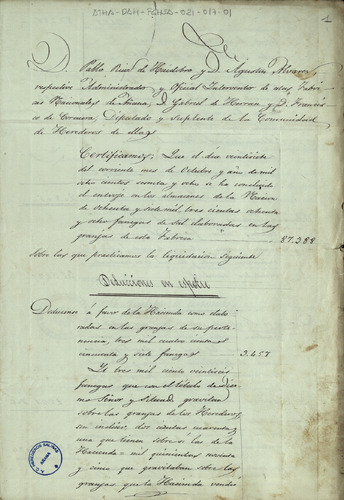 ATHA-DAH-FCHSA-021-017-01
1
Pablo Ruiz de Haidobro y D. Agustin Alvarez
respective Administrador y Oficial Interventor de estas Fabri-
cas Nacionales de Añana, D. Gabriel de Herran y D. Francis-
co de Corcuera, Diputado y Suplente de la Comunidad
de Herederos de ellas
Certificamos: Que el dia veintisiete
del corriente mes de Octubre y año de mil
ocho cientos sesenta y ocho se ha concluido
el entroje en los almacenes de la Nacion
de ochenta y siete mil, tres cientas ochenta
y ocho fanegas de sal elaboradas en las
granjas de esta Fabrica
87.388
Sobre las que practicamos la liquidacion siguiente
Deducciones en especie
Deducense á favor de la Hacienda como elabo-
radas en las granjas de su perte-
nencia, tres mil cuatro cientas
cincuenta y siete fanegas
3.457
Id tres mil ciento veinticinco
fanegas que con el titulo de Diez-
mo Señor y Situado gravitan
sobre las granjas de los Herederos,
sin incluir dos cientas cuarenta y
una que tienen sobre si las de la
Hacienda = mil quinientas noventa
y cinco que gravitaban sobre las
granjas que la Hacienda vendio
SALINAS
AÑANA